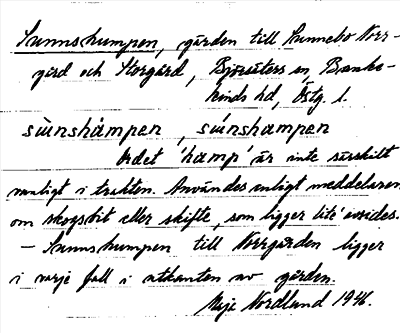 Sunnshumpen, gärden till Sunnebo Norr-
gård och Storgård, Björsäters sn, Banke-
kinds hd, Östg. l.
sùnshámpen, súnshampen
Ordet 'hamp' är inte särskilt
vanligt i trakten. Användes enligt meddelaren
om skogsbit eller skifte, som ligger lite' avsides.
– Sunnshumpen till Norrgården ligger
i varje fall i utkanten av gärden.
Maj Nordlund 1946.